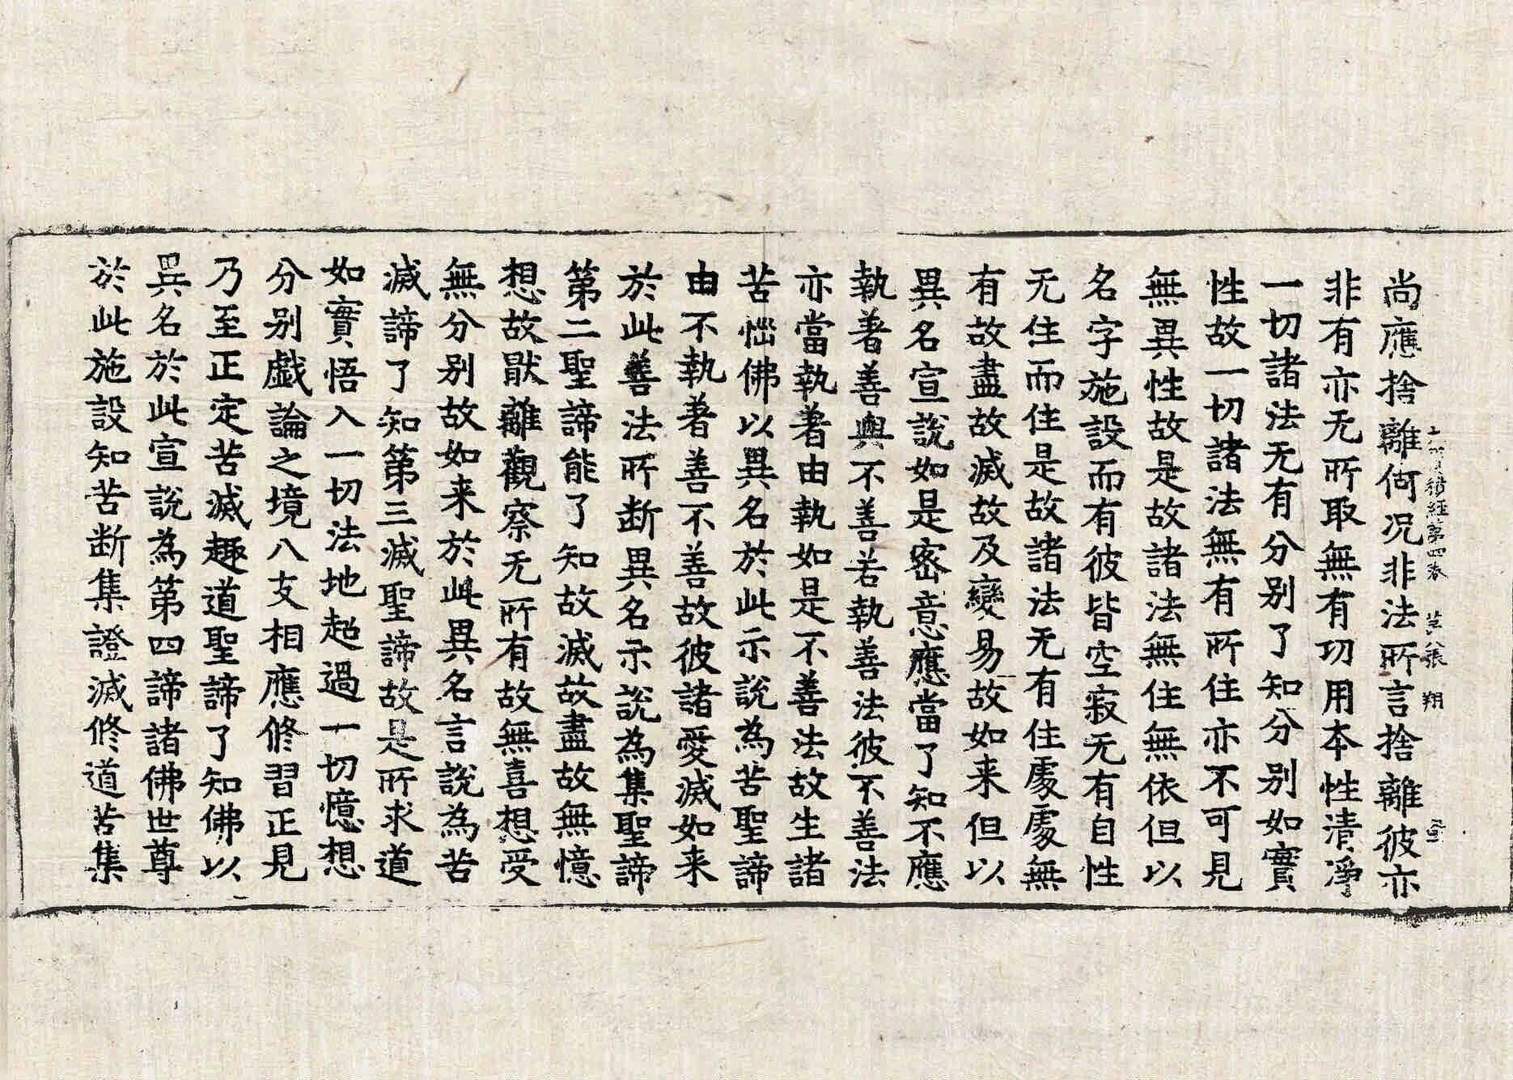 大寶積經第四卷 張 翔
尚應捨離何况非法所言捨離彼亦
非有亦无所取無有功用本性清淨
一切諸法无有分别了知分别如實
性故一切諸法無有所住亦不可見
無異性故是故諸法無住無依但以
名字施設而有彼皆空寂无有自性
无住而住是故諸法无有住處處無
有故盡故滅故及變易故如来但以
異名宣說如是密意應當了知不應
執著善與不善若執善法彼不善法
亦當執著由執如是不善法故生諸
苦惱佛以異名於此示說為苦聖諦
由不執著善不善故彼諸愛滅如来
於此善法所断異名示說為集聖諦
第二聖諦能了知故滅故盡故無憶
想故猒離觀察无所有故無喜想受
無分别故如来於此異名言說為苦
滅諦了知第三滅聖諦故是所求道
如實悟入一切法地超過一切憶想
分别戯論之境八支相應修習正見
乃至正定苦滅趣道聖諦了知佛以
異名於此宣說為第四諦諸佛世尊
於此施設知苦断集證滅修道苦集